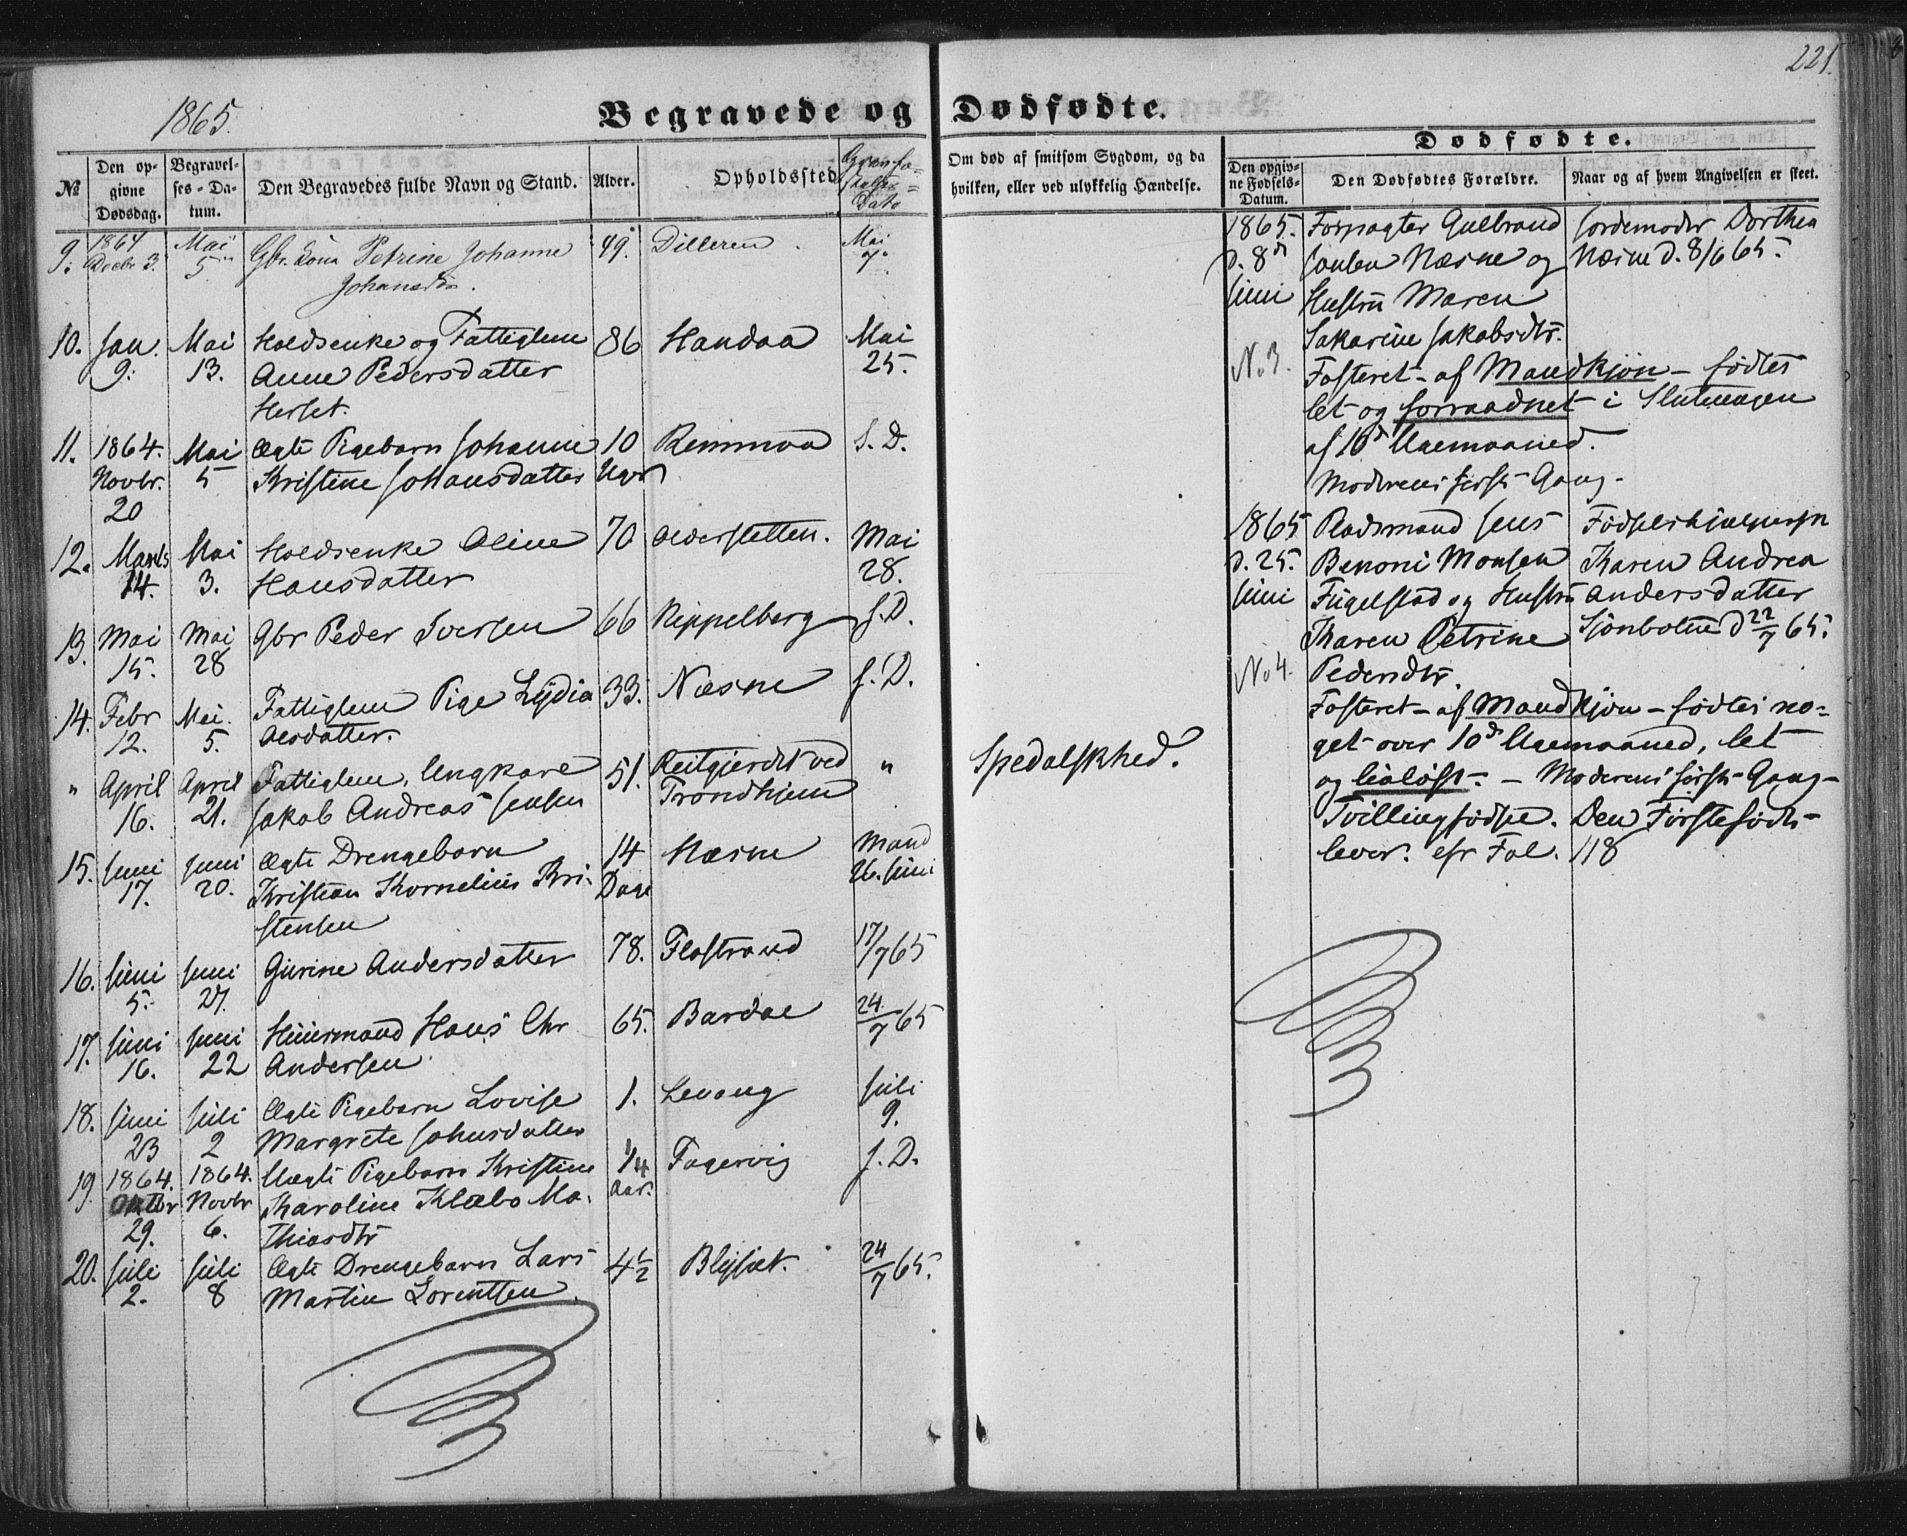 221.
1865.
Begravede og Dødfødte.
№
Den opgivne Dødsdag.
Begravelses-Datum.
Den Begravedes fulde Navn og Stand.
Alder.
Opholdssted
Om død af smitsom Sygdom, og da hvilken, eller ved ulykkelig Hændelse.
Dødfødte.
Den opgivne Fødsels-Datum.
Den Dødfødtes Forældre.
Naar og af hvem Angivelsen er skeet.
9. 1864 Decbr 3. Mai 5 Gbr. kona Petrine Johanne 49. Dilleren. Mai 7.
Johansdtr.
10. Jan. 9. Mai 13. Holdsenke og Fattiglem 86 Handaa Mai 25.
Anne Pedersdatter
Herset.
11. 1864. Novbr. 20 Mai 5 Ægte Pigebarn Johanne 10 Uger Remmaa S. D.
Kristine Johansdatter
12. Marts 14. Mai 3. Holdsenke Oline 70 Alderstetten. Mai 28.
Hansdatter
13. Mai 15. Mai 28 Gbr Peder Iversen 66 Rippelberg S. D.
14. Febr 12. Mai 5. Fattiglem Pige Lydia 33. Næsne S. D.
Olsdatter.
" April 16. April 21. Fattiglem, Ungkare 51. Reitgjerdet ved Trondhjem " Spedalskhed.
Jakob Andreas Jensen
15. Juni 17. Juni 20. Ægte Drengebarn 14 Dage Næsne Mand 26. Juni
Kristian Kornelius Kristensen
16. Juni 5. Juni 27. Gurine Andersdatter 78. Flostrand 17/7 65
17. Juni 16. Juni 22 Huusmand Hans Chr 65. Bardal 24/7 65
Andersen
18. Juni 23 Juli 2 Ægte Pigebarn Lovise 1. Levang Juli 9.
Margrete Johnsdatter
19. 1864. Oktbr 29. 1864. Novbr 6. Uægte Pigebarn Kristine 1/4 Aar. Fagervig S. D.
Karoline Klæbo Mathiasdtr
20. Juli 2. Juli 8 Ægte Drengebarn Lars 4½ Blysæt. 24/7 65.
Martin Lorentsen.
1865. d. 8d Juni
Forpagter Gulbrand
Næsne og
Hustru Maren
Sakarine Jakobsdtr.
Jordemoder Dorthea
Næsne d. 8/6 65.
No 3.
Fosteret - af Mandkjøn - fødtes
let og forraadnet i Slutningen
af 10d Ugemaaned.
Moderens første Gang.
1865 d. 25. Juni
Radsmand Jens
Benoni Monsen
Fugelstad og Hustru
Karen Petrine
Pedersdtr.
Fødselshjælpersk
Karen Andrea
Andersdatter
Sjonbotne d 22/7 65.
No 4.
Fosteret - af Mandkjøn - fødtes noget
over 10d Ugemaaned, let
og livløst. - Moderens første Gang -
Tvillingfødsel. Den Førstefødte
lever. cfr Fol. 118